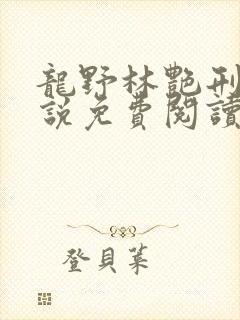 龍野林艷刑
說免費閱讀
登貝葉